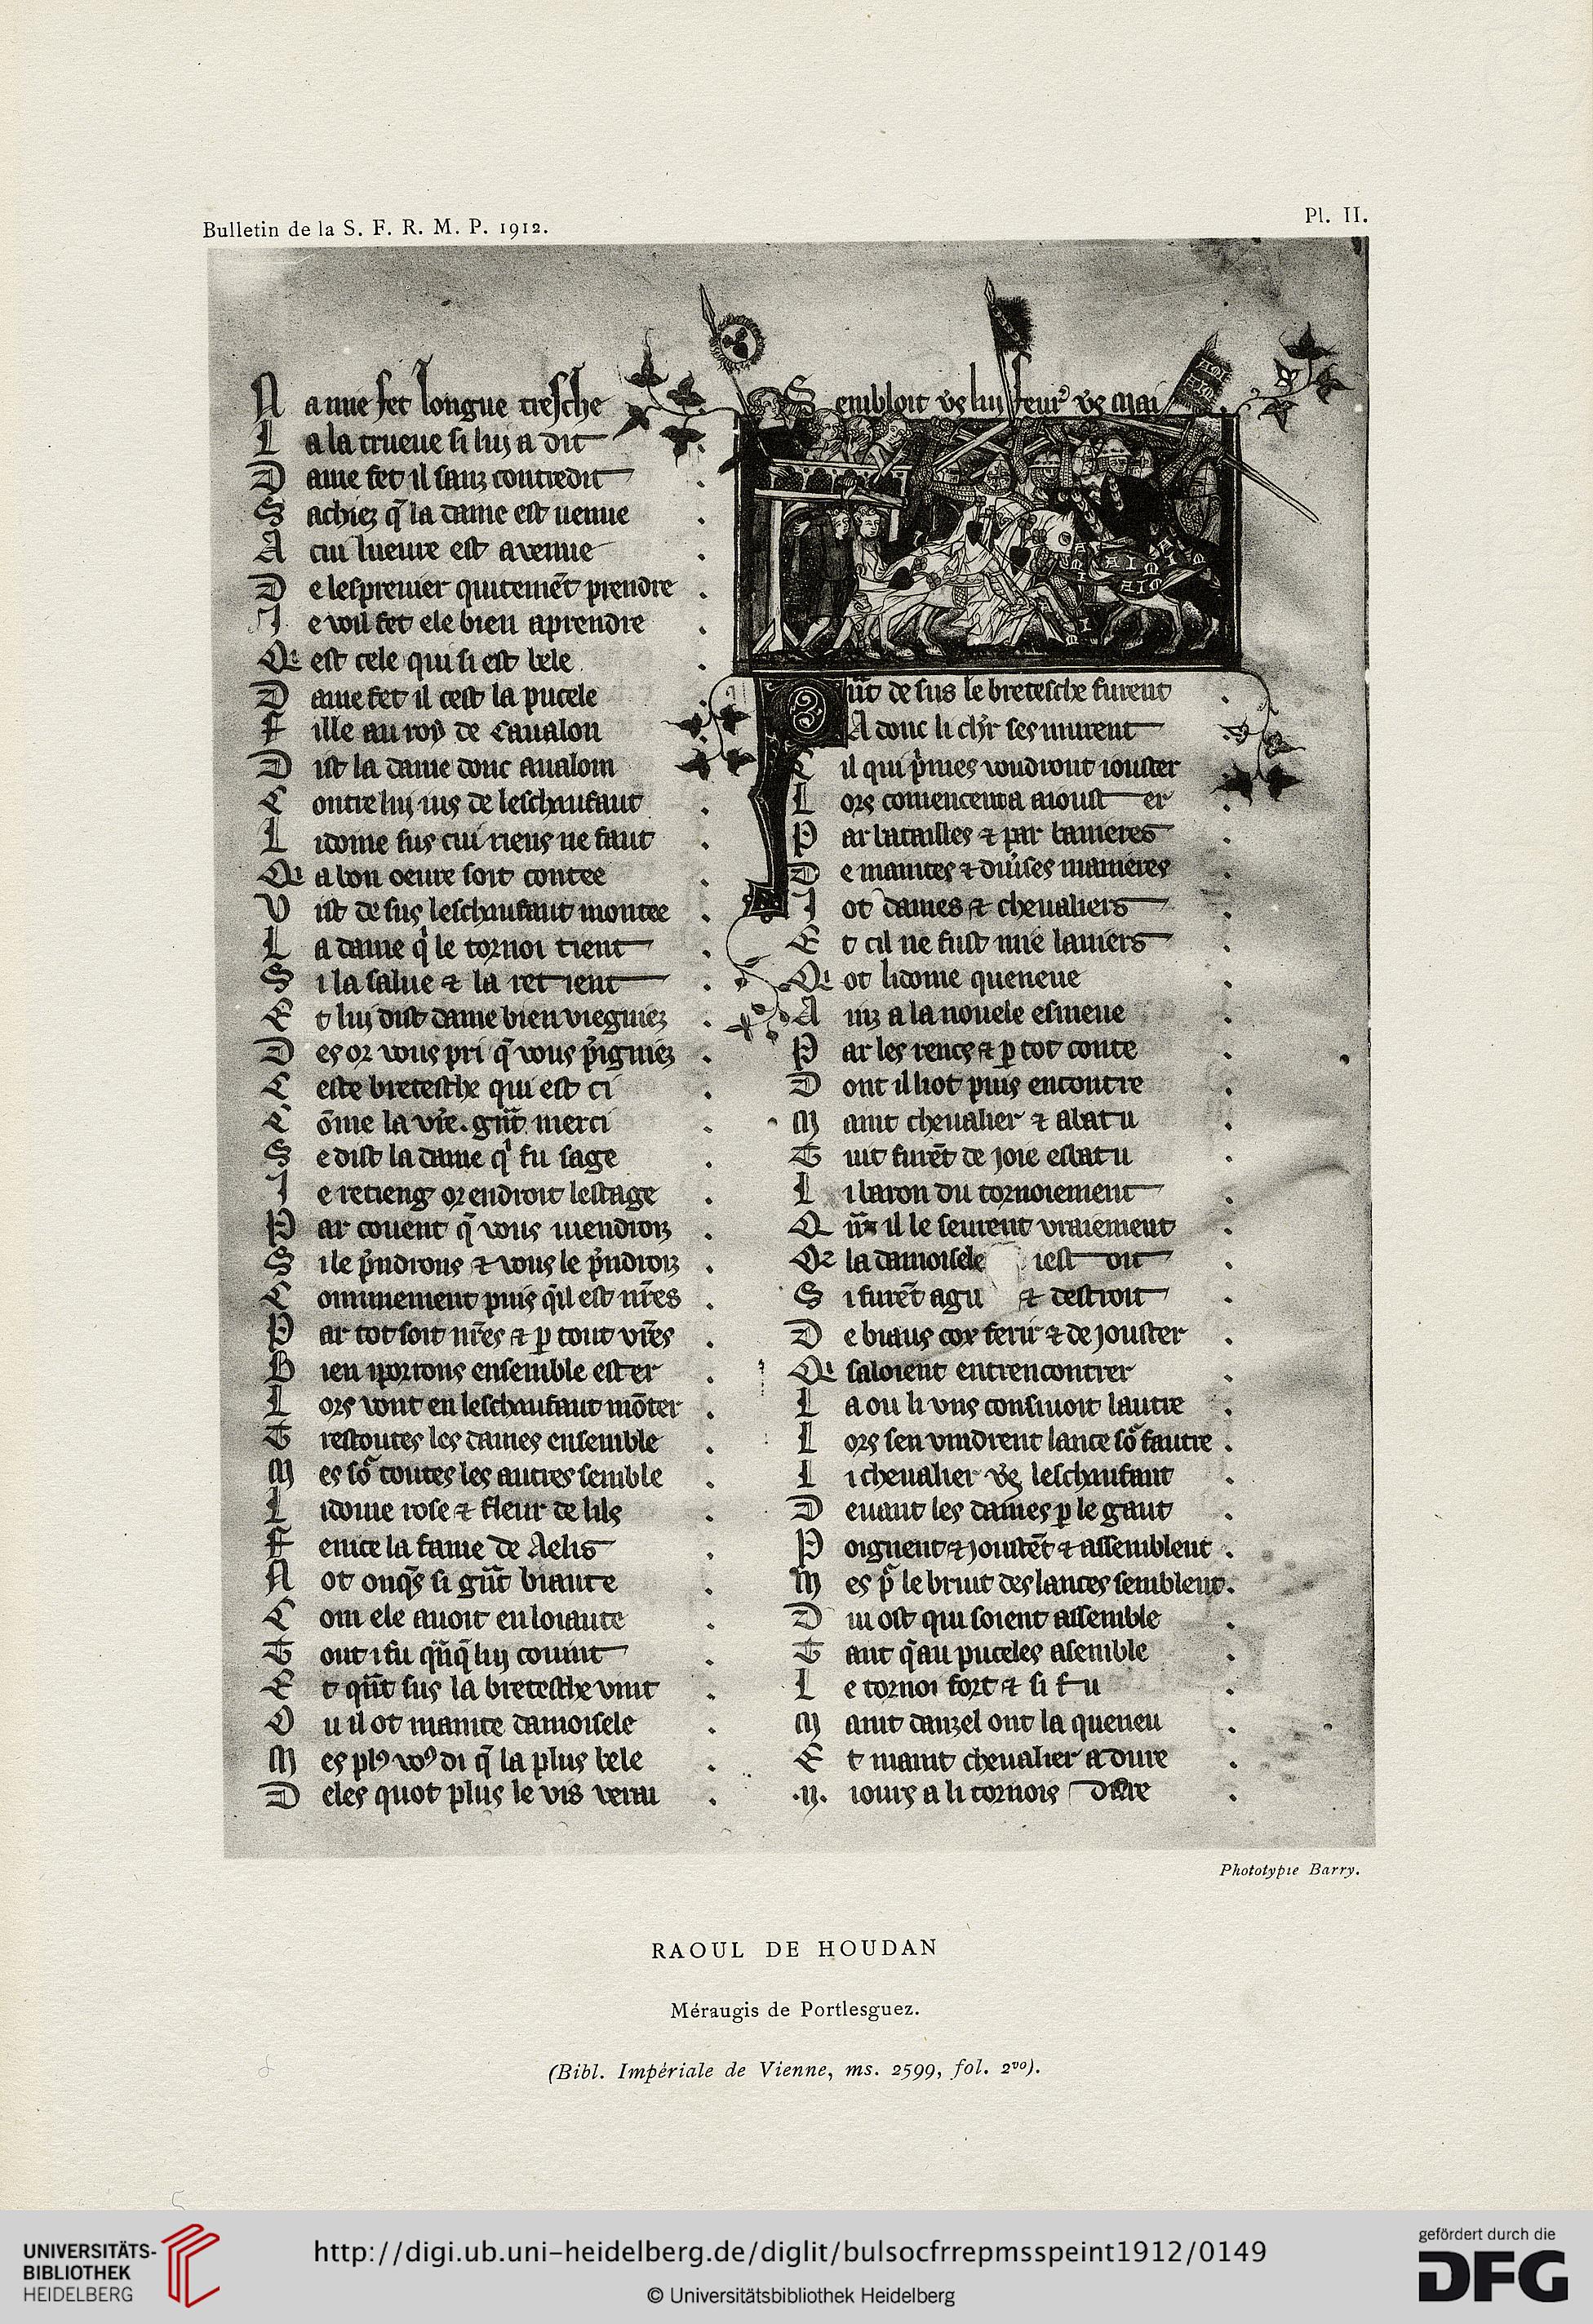 Bulletin de la S. F. R. M. P. 1912.
Pl. II.
N a mie fet longue tresche
L a la trueue si luj a dit
D ame fet il sanz contredit
S achiez q̃ la dame est uenue
A cui lueure est avenue
D e lespreuier quitemẽt prendre
J e voil fet ele bien aprendre
Q̃i est cele qui si est bele
D ame fet il cest la pucele
F ille au roy de cavalon
D ist la dame donc aualom
C ontre luj ius de leschaufaut
L idoine sus cui riens ne faut
Qi a bon oeure soit contee
V ist desus leschaufaut montee
L a dame q̇ le tornoi tient
S i la salue ⁊ la retient
E t luj dist dame bien viegniez
D es or vous pri q̃ vous p̃igniez
C este bretesche qui est ci
C õme la vr̃e. gñt merci
S e dist la dame qⁱ fu sage
J e retieng orendroit lestage
P ar couent q̃ vous uiendroiz
S i le p̃ndrons ⁊ vous le p̃ndroiz
C ommunement puis q̃il est nr̃es
P ar tot soit nr̃es ⁊ ꝑ tout vr̃es
B ien i porrons ensemble ester
L ors vont en leschaufaut mõter
T restoutes les dames ensemble
M es so͂ toutes les autres semble
L idoine rose ⁊ fleur de lils
F enice la fame de Aelis
N ot onq̃s si gñt biaute
C om ele auoit en loiaute
T out i fu q̃nq̃ luj couint
E t qñt sus la bretesche vint
O u il ot mainte damoisele
M es plꝰ voꝰ di q̃ la plus bele
D eles quot plus le vis verai
S embloit v̾s luj feurꝰ v̾s mai
Q ñt desus le bretesche furent
A donc li chr̃ ses murent
C il qui p̃mies voudront iouster
L ors comencent a aiouster
P ar batailles ⁊ par banieres
D e maintes ⁊ diũses manieres
J ot dames ⁊ cheualiers
E t cil ne fust mie laniers
Qi ot lidoine queneue
A inz a la nouele esmeue
P ar les rencs ⁊ ꝑ tot conte
D ont il hot puis encontre
M aint cheualier ⁊ abatu
T uit furẽt de joie esbatu
L i baron du tornoiement
Q ñt il le seurent vraiement
Q̃ la damoisele iest oit
S i furẽt agu ⁊ destroit
D e biaus cox ferir ⁊ de jouster
Qi saloient entrencontrer
L a ou li vns consiuoit lautre
L ors sen vindrent lance so͂ fautre
L i cheualier v̾s leschaufaut
D euant les dames ꝑ le gaut
P oignent ⁊ joustẽt ⁊ assemblent
M es p̾ le bruit des lances semblent
D iu ost qui soient assemble
T ant q̃ au puceles asemble
L e tornoi fort ⁊ si fu
M aint danzel ont la queneu
E t maint cheualier a dure
.ij. iours a li tornois dure
Phototypie Barry.
RAOUL DE HOUDAN
Méraugis de Portlesguez.
(Bibl. Impériale de Vienne, ms. 2599, fol. 2vo).
UNIVERSITÄTS-
BIBLIOTHEK
HEIDELBERG
http://digi.ub.uni-heidelberg.de/diglit/bulsocfrrepmsspeint1912/0149
© Universitätsbibliothek Heidelberg
gefördert durch die
DFG